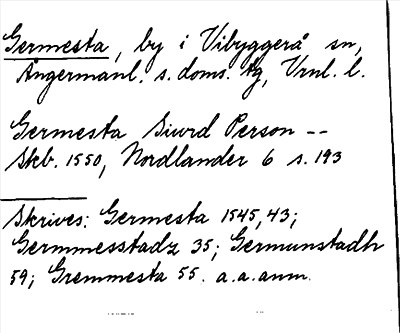 Germesta, by i Vibyggerå sn,
Ångermanl. s. doms. tg, Vrnl. l.
Germesta Siurd Person --
Skb. 1550, Nordlander 6 s. 193
Skrives: Germesta 1545, 43;
Germmesstadz 35; Germunstadh
59; Gremmesta 55. a.a.anm.